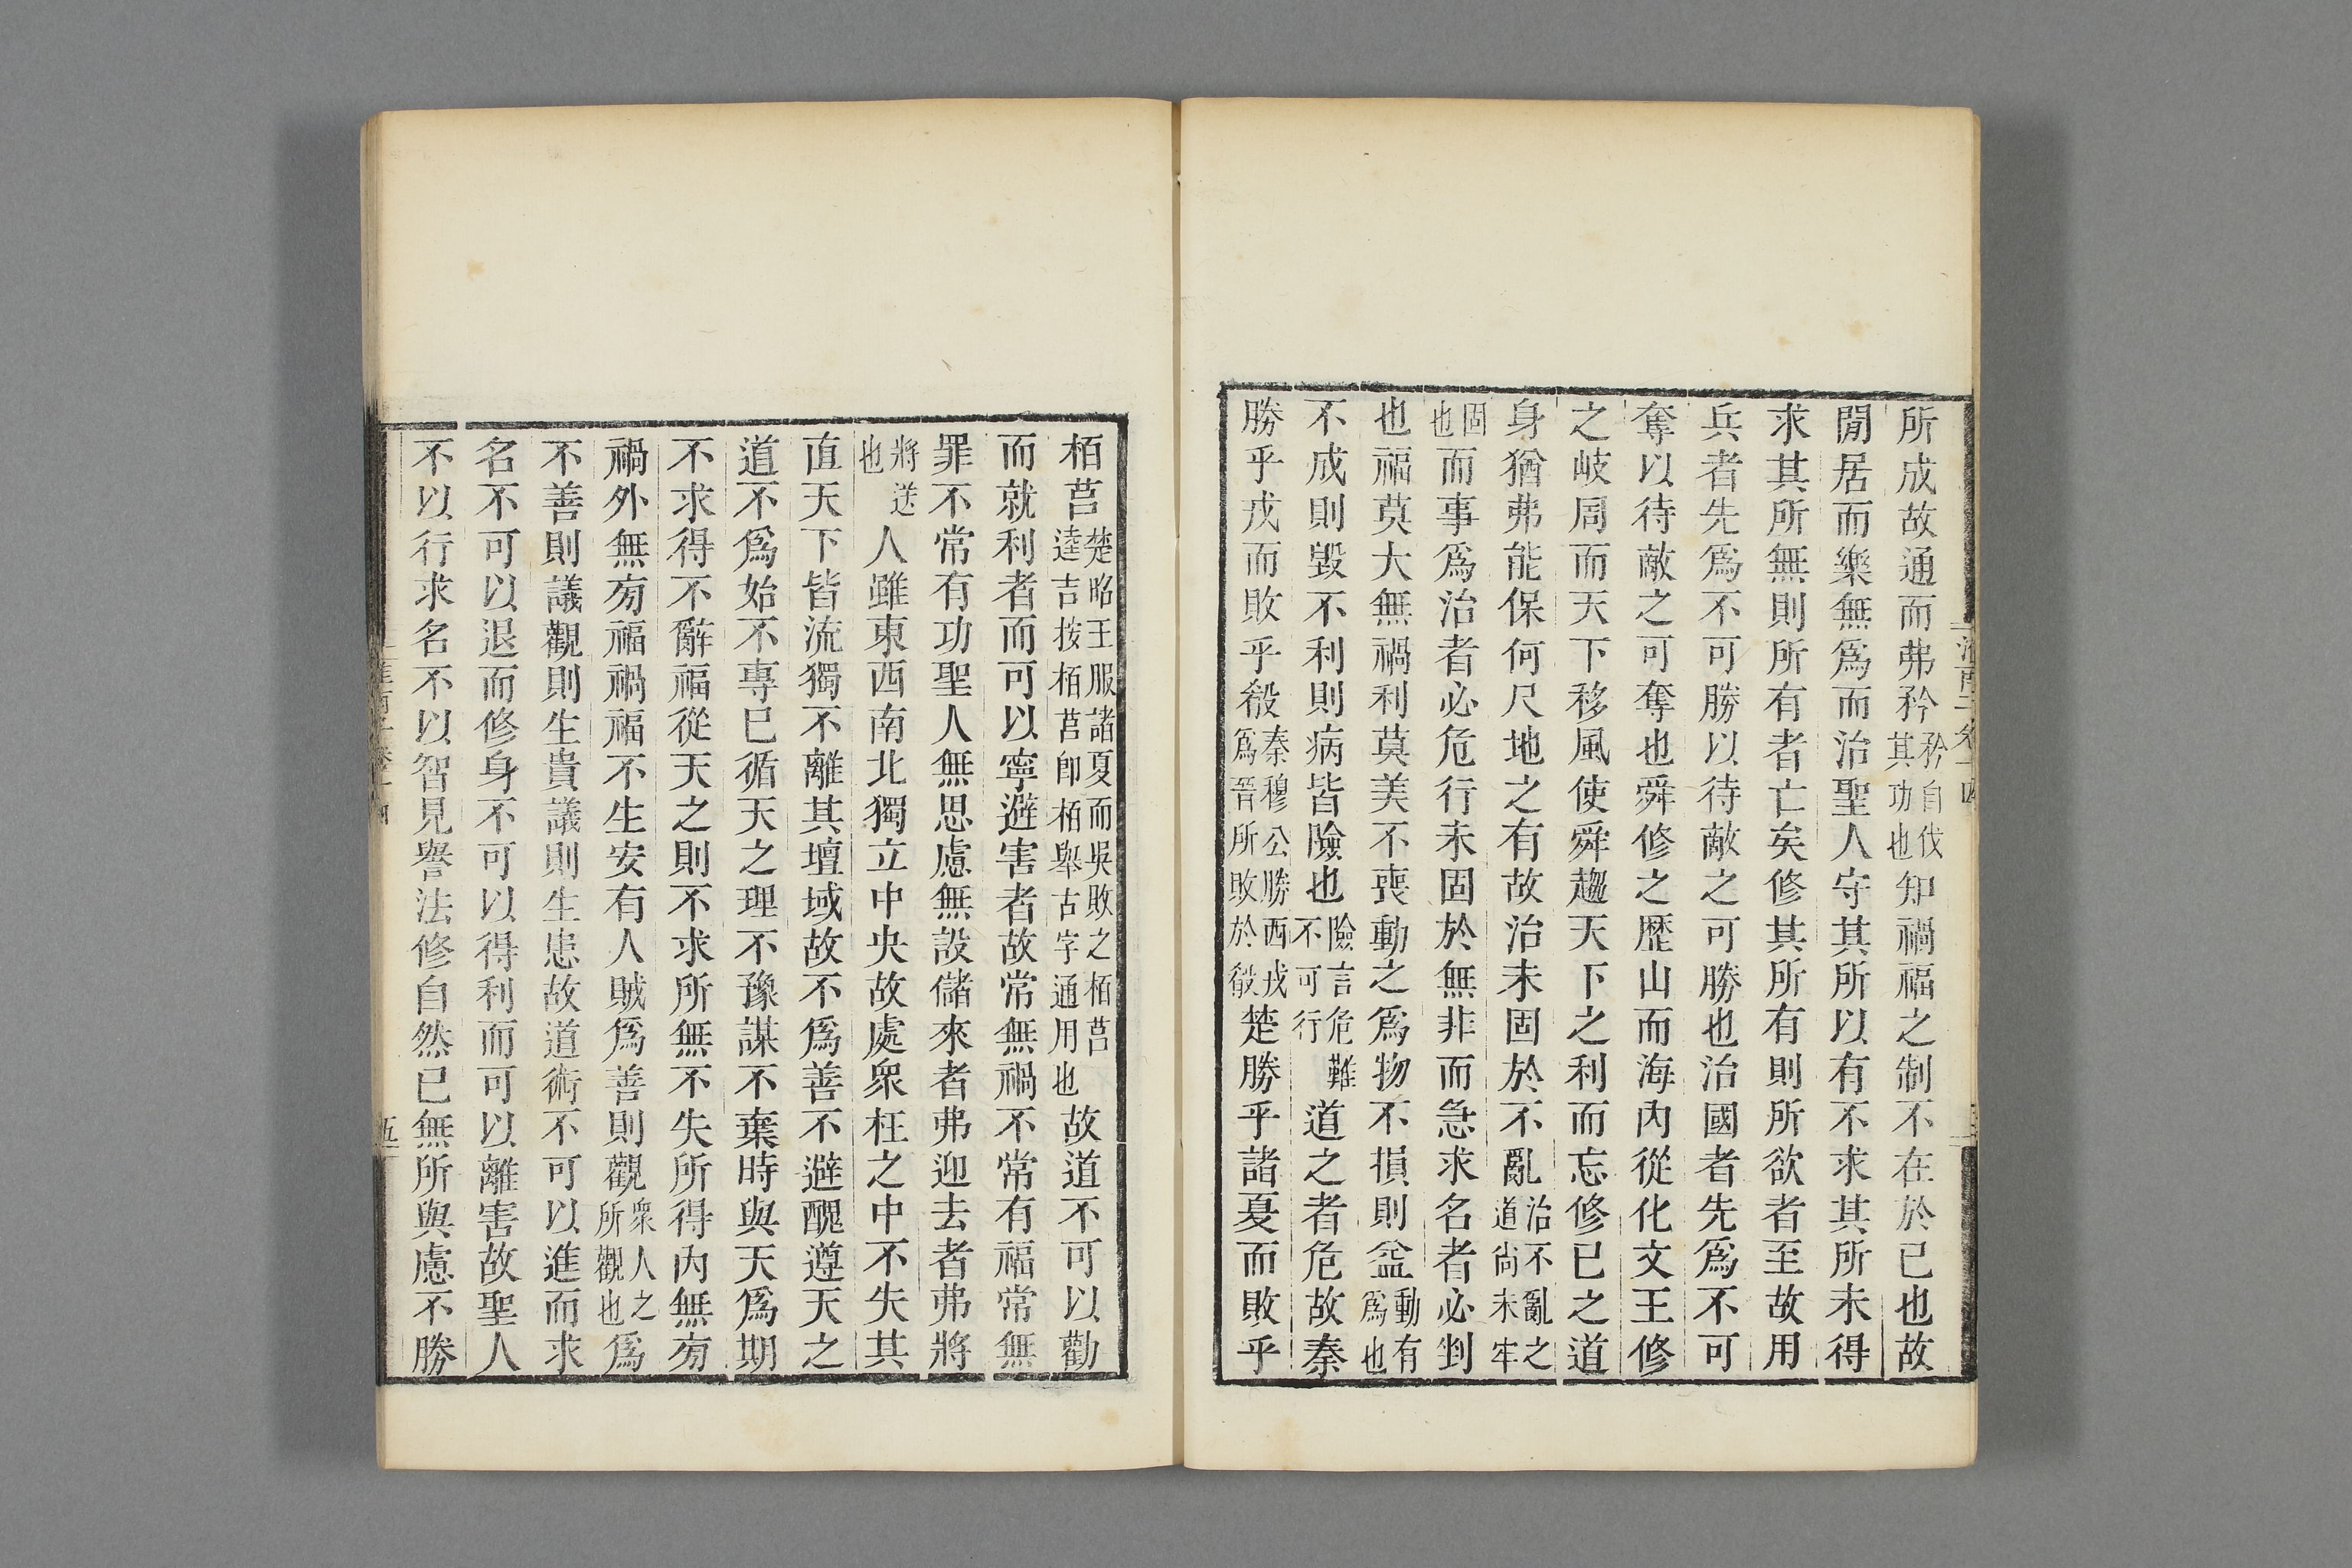 所成故通而弗矜矜自伐其功也知禍福之制不在於已也故
閒居而樂無爲而治聖人守其所以有不求其所未得
求其所無則所有者亡矣修其所有則所欲者至故用
兵者先爲不可勝以待敵之可勝也治國者先爲不可
奪以待敵之可奪也舜修之歷山而海內從化文王修
之岐周而天下移風使舜趨天下之利而忘修已之道
身猶弗能保何尺地之有故治未固於不亂治不亂之道尙未牢
固也而事爲治者必危行未固於無非而急求名者必剉
也福莫大無禍利莫美不喪動之爲物不損則益動有爲也
不成則毀不利則病皆險也險言危難不可行道之者危故秦
勝乎戎而敗乎殽秦穆公勝西戎爲晉所敗於殽楚勝乎諸夏而敗乎
栢莒楚昭王服諸夏而吳敗之栢莒逵吉按栢莒卽栢舉古字通用也故道不可以勸
而就利者而可以寧避害者故常無禍不常有福常無
罪不常有功聖人無思慮無設儲來者弗迎去者弗將
將送也人雖東西南北獨立中央故處衆枉之中不失其
直天下皆流獨不離其壇域故不爲善不避醜遵天之
道不爲始不專已循天之理不豫謀不棄時與天爲期
不求得不辭福從天之則不求所無不失所得內無㫄
禍外無㫄福禍福不生安有人賊爲善則觀衆人之所觀也爲
不善則議觀則生貴議則生患故道術不可以進而求
名不可以退而修身不可以得利而可以離害故聖人
不以行求名不以智見譽法修自然已無所與慮不勝
五